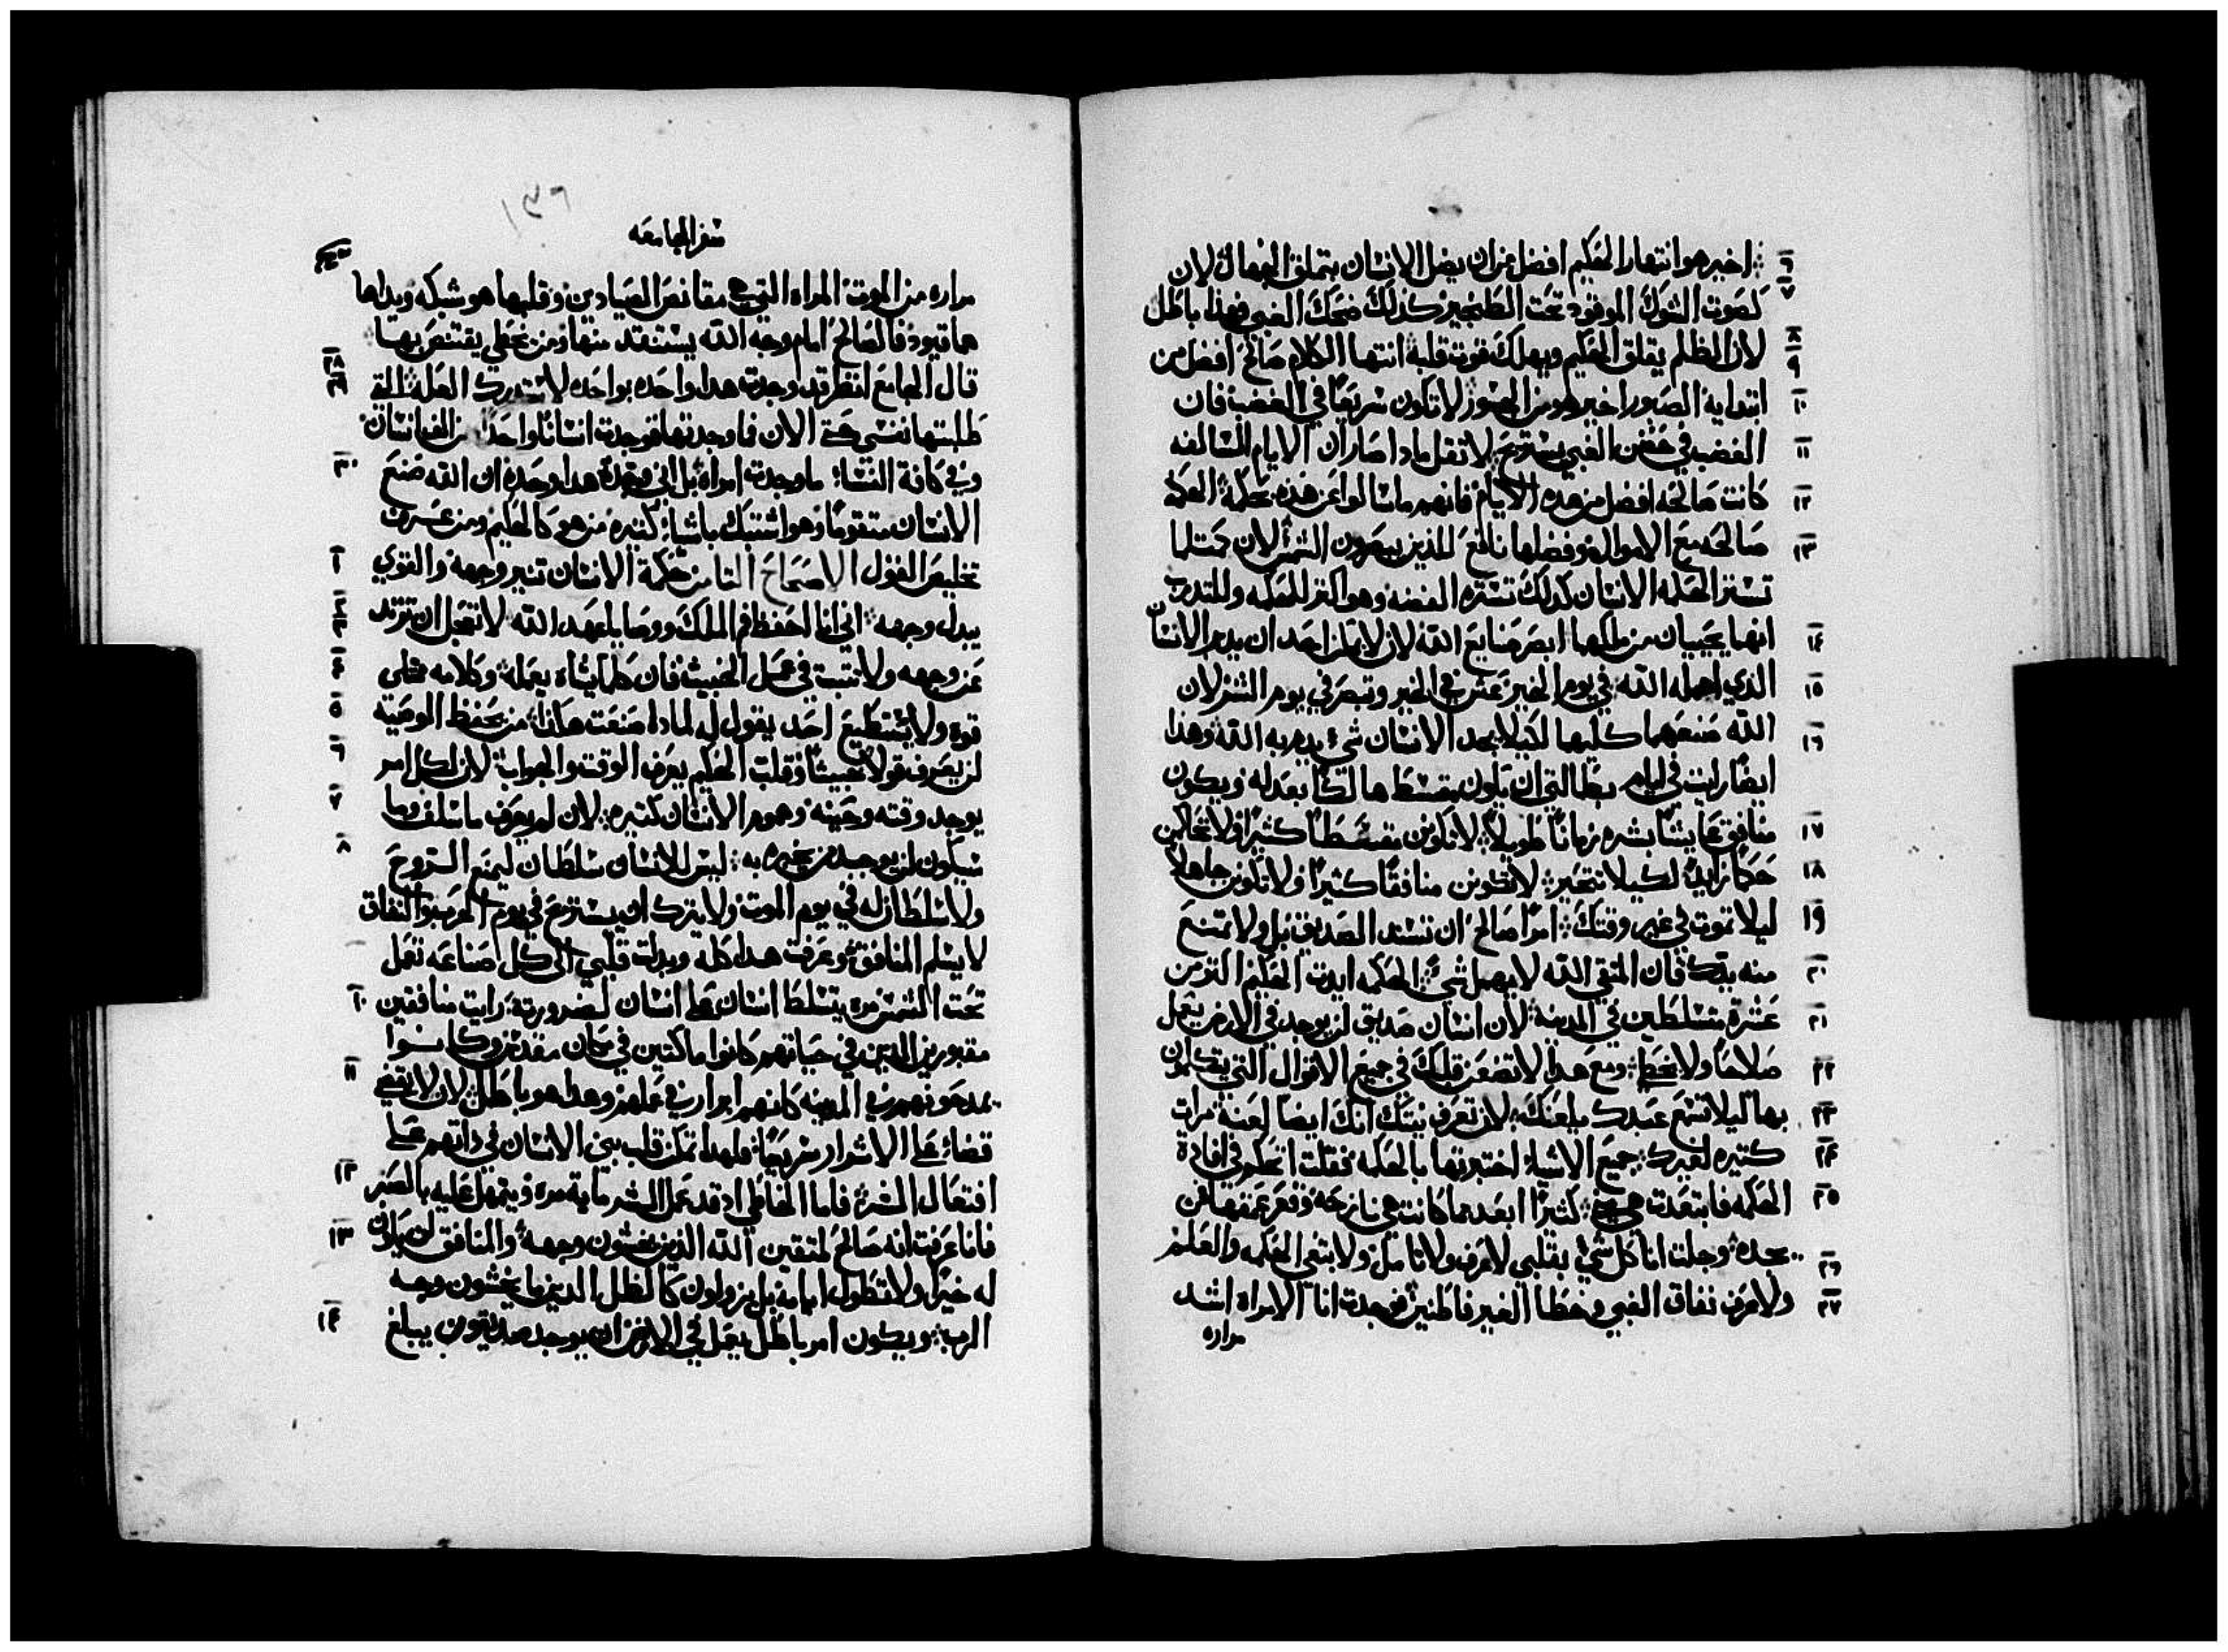 اخير هو انتهار الحكيم افضل من ان يضل الانسان بتملق الجهال لان
كصوت الشوك الموقود تحت الطنجير كذلك ضحك الغبي فهذا باطل
لان الظلم يقلق الحكيم ويهلك قوت قلبه انتها الكلام صالح افضل من
ابتدايه الصبور اخير هو من لا تكون سريعا في الغضب فان
الغضب في حضن الغبي يستريح لا تقل ماذا صار ان الايام السالفه
كانت صالحه افضل من هده الايام فانهم ما سالوا عن هذه بحكمة الحكمه
صالحه مع الاموال وفضلها نافع للذين يبصرون الشمس لان كمثلما
تستر الحكمه الانسان كذلك تستره الفضه وهو اكثر للحكمه وللتدرب
انها يحييان من يملكها ابصر صنايع الله لان لا يمكن احد ان يدبر الانسان
الذي اهمله الله في يوم الخير عش في الخير وتبصر في يوم الشر لان
الله صنعهما كليهما لكيلا يجد الانسان شي يدمر به الله وهذا
ايضا رايت في ايام بطالتي ان يكون مقسط هالكا بعدله ويكون
منافق عايشا بشره زمانا طويلا لا تكونن مقسطا كثيرا ولا تحاكمن
حكما زايدا لكيلا تتحير لا تكونن منافقا كثيرا ولا تكونن جاهلا
ليلا تموت في غير وقتك امرا صالح ان تسند الصديق بل ولا تمنع
منه يدك فان المتقي الله لا يهمل شي الحكمه ايدت الحكيم اكثر من
عشرة متسلطين في المدينه لان انسان صديق لن يوجد في الارض يعمل
صلاحا ولا يخطي ومع هدا لا تضعن قلبك في جميع الاقوال التي يتكلمون
بها ليلا تسمع عبدك يلعنك لان تعرف نيتك انك ايضا لعنة مرات
كثيره لغيرك جميع الاشياء اختبرتها بالحكمه فقلت اتحكم في افادة
الحكمه فابتعدت هي عني كثيرا ابعد مما كانت هي نازحه وقعر عمقها من
يجده وجلت انا كل شي بقلبي لاعرف ولاتامل ولابتغي الحكمه والعلم
ولاعرف نفاق الغبي وخطا الغير فاطنين فوجدت انا الامراه اشد
مراره
سفر الجامعه
مراره من الموت المراه التي هي مقانص الصيادين وقلبها هو شبكه ويداها
هما قيود فالصالح امام وجه الله يستنقد منها ومن يخطي يقتنص بها
قال الجامع انظر قد وجدت هدا واحده بواحده لاستدرك العلة التي
طلبتها نفسي حتى الان فما وجدتها فوجدت انسانا واحدا من الف انسان
وفي كافة النسا ما وجدت امراة بل اني وجدة هدا وحده ان الله صنع
الانسان متقوما وهو اشتبك باشيا كثيره من هو كالحكيم ومن عرف
تخليص القول الاصحاح الثامن حكمة الانسان تنير وجهه والقوي
يبدل وجهه اني انا احفظ فم الملك ووصايا عهد الله لا تعجل ان ترتد
عن وجهه ولا تتبت في عمل الخبيث فان كلما يشاه يعمله وكلامه ممتلي
قوه ولا يستطيع احد يقول له لمادا صنعت هكذا من يحفظ الوصيه
لن يعرف قولا خبيثا وقلب الحكيم يعرف الوقت والجواب لان لكل امر
يوجد وقته وحينه وهموم الانسان كثيره لان لم يعرف ما سلف وما
سيكون لن يوجد من يخبره به ليس للانسان سلطان ليمنع الروح
ولا سلطان له في يوم الموت ولا يترك ان يستريح في يوم الحرب والنفاق
لا يسلم المنافق وعرفت هدا كله وبدلت قلبي الى كل صناعه تعمل
تحت الشمس مره يتسلط انسان على انسان لضرورته رايت منافقين
مقبورين الدين في حياتهم كانوا ماكتين في مكان مقدس وكانوا
يمدحونهم في المدينه كانهم ابرار في عملهم وهدا هو باطل لان لا يقضى
قضاء على الاشرار سريعا فلهدا تمكن قلب بني الانسان في ذاتهم على
افتعال الشر فاما الخاطي اد قد عمل الشر ماية مره ويتمهل عليه بالصبر
فانا عرفت انه صالح لمتقين الله الذين يخشون وجهه والمنافق لن يكون
له خيرا ولا تطول ايامه بل يزولون كالظل الدين ما يخشون وجه
الرب ويكون امر باطل يعمل في الارض ان يوجد صديقون يبلغ